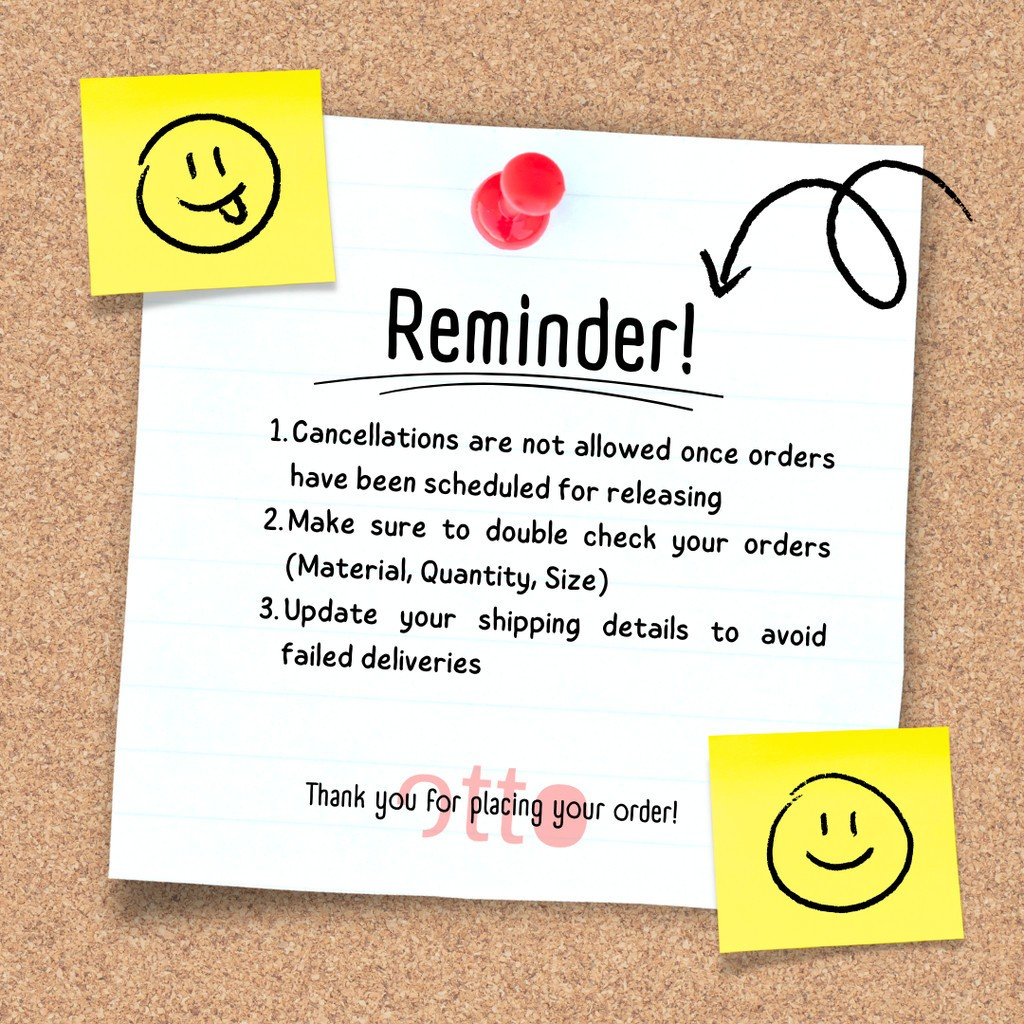 Reminder!
1. Cancellations are not allowed once orders
have been scheduled for releasing
2. Make sure to double check your orders
(Material, Quantity, Size)
3. Update your shipping details to avoid
failed deliveries
otto
Thank you for placing your order!